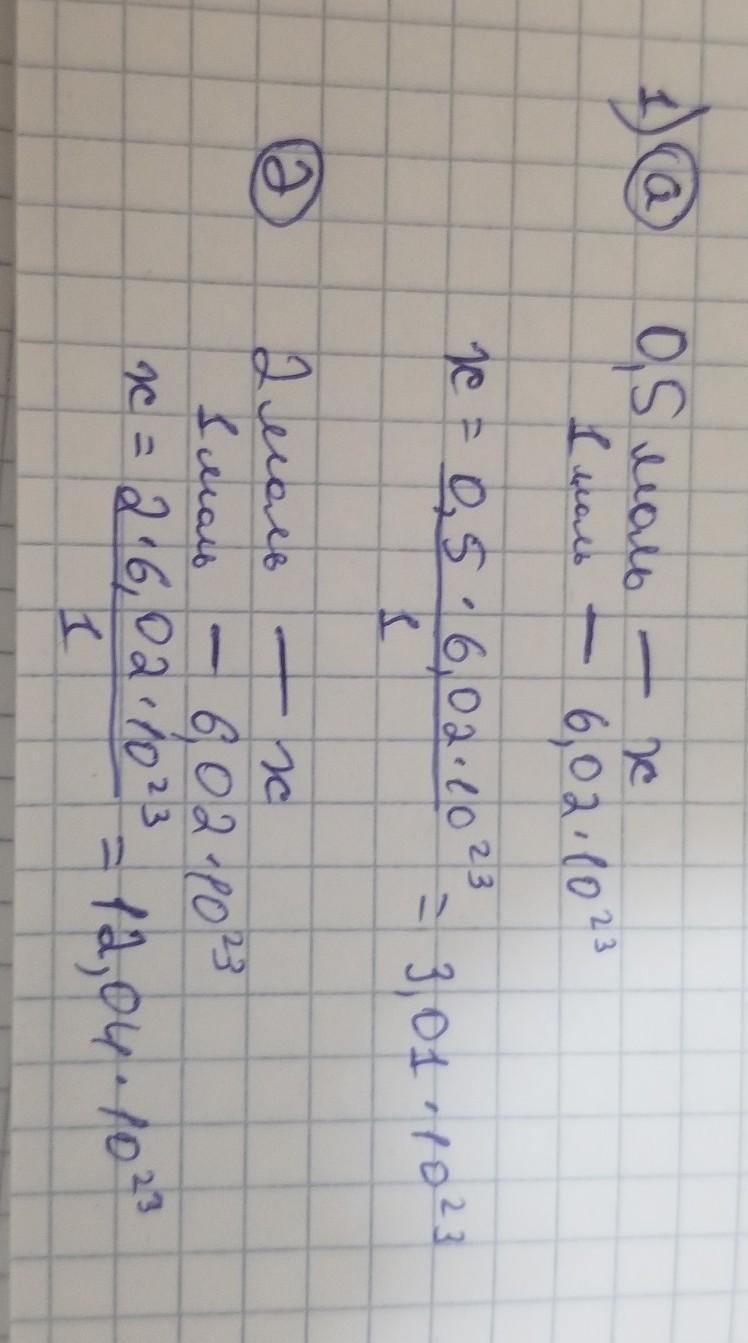 1) а 0,5 моль — х
1 моль — 6,02 · 10²³
х = 0,5 · 6,02 · 10²³ = 3,01 · 10²³
1
д 2 моль — х
1 моль — 6,02 · 10²³
х = 2 · 6,02 · 10²³ = 12,04 · 10²³
1